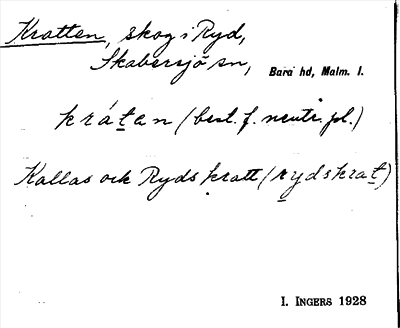 Kratten, skog i Ryd,
Skabersjö sn, Bara hd, Malm. l.
krátan (best. f. neutr. pl.)
Kallas ock Ryds kratt (rydskrat)
I. INGERS 1928